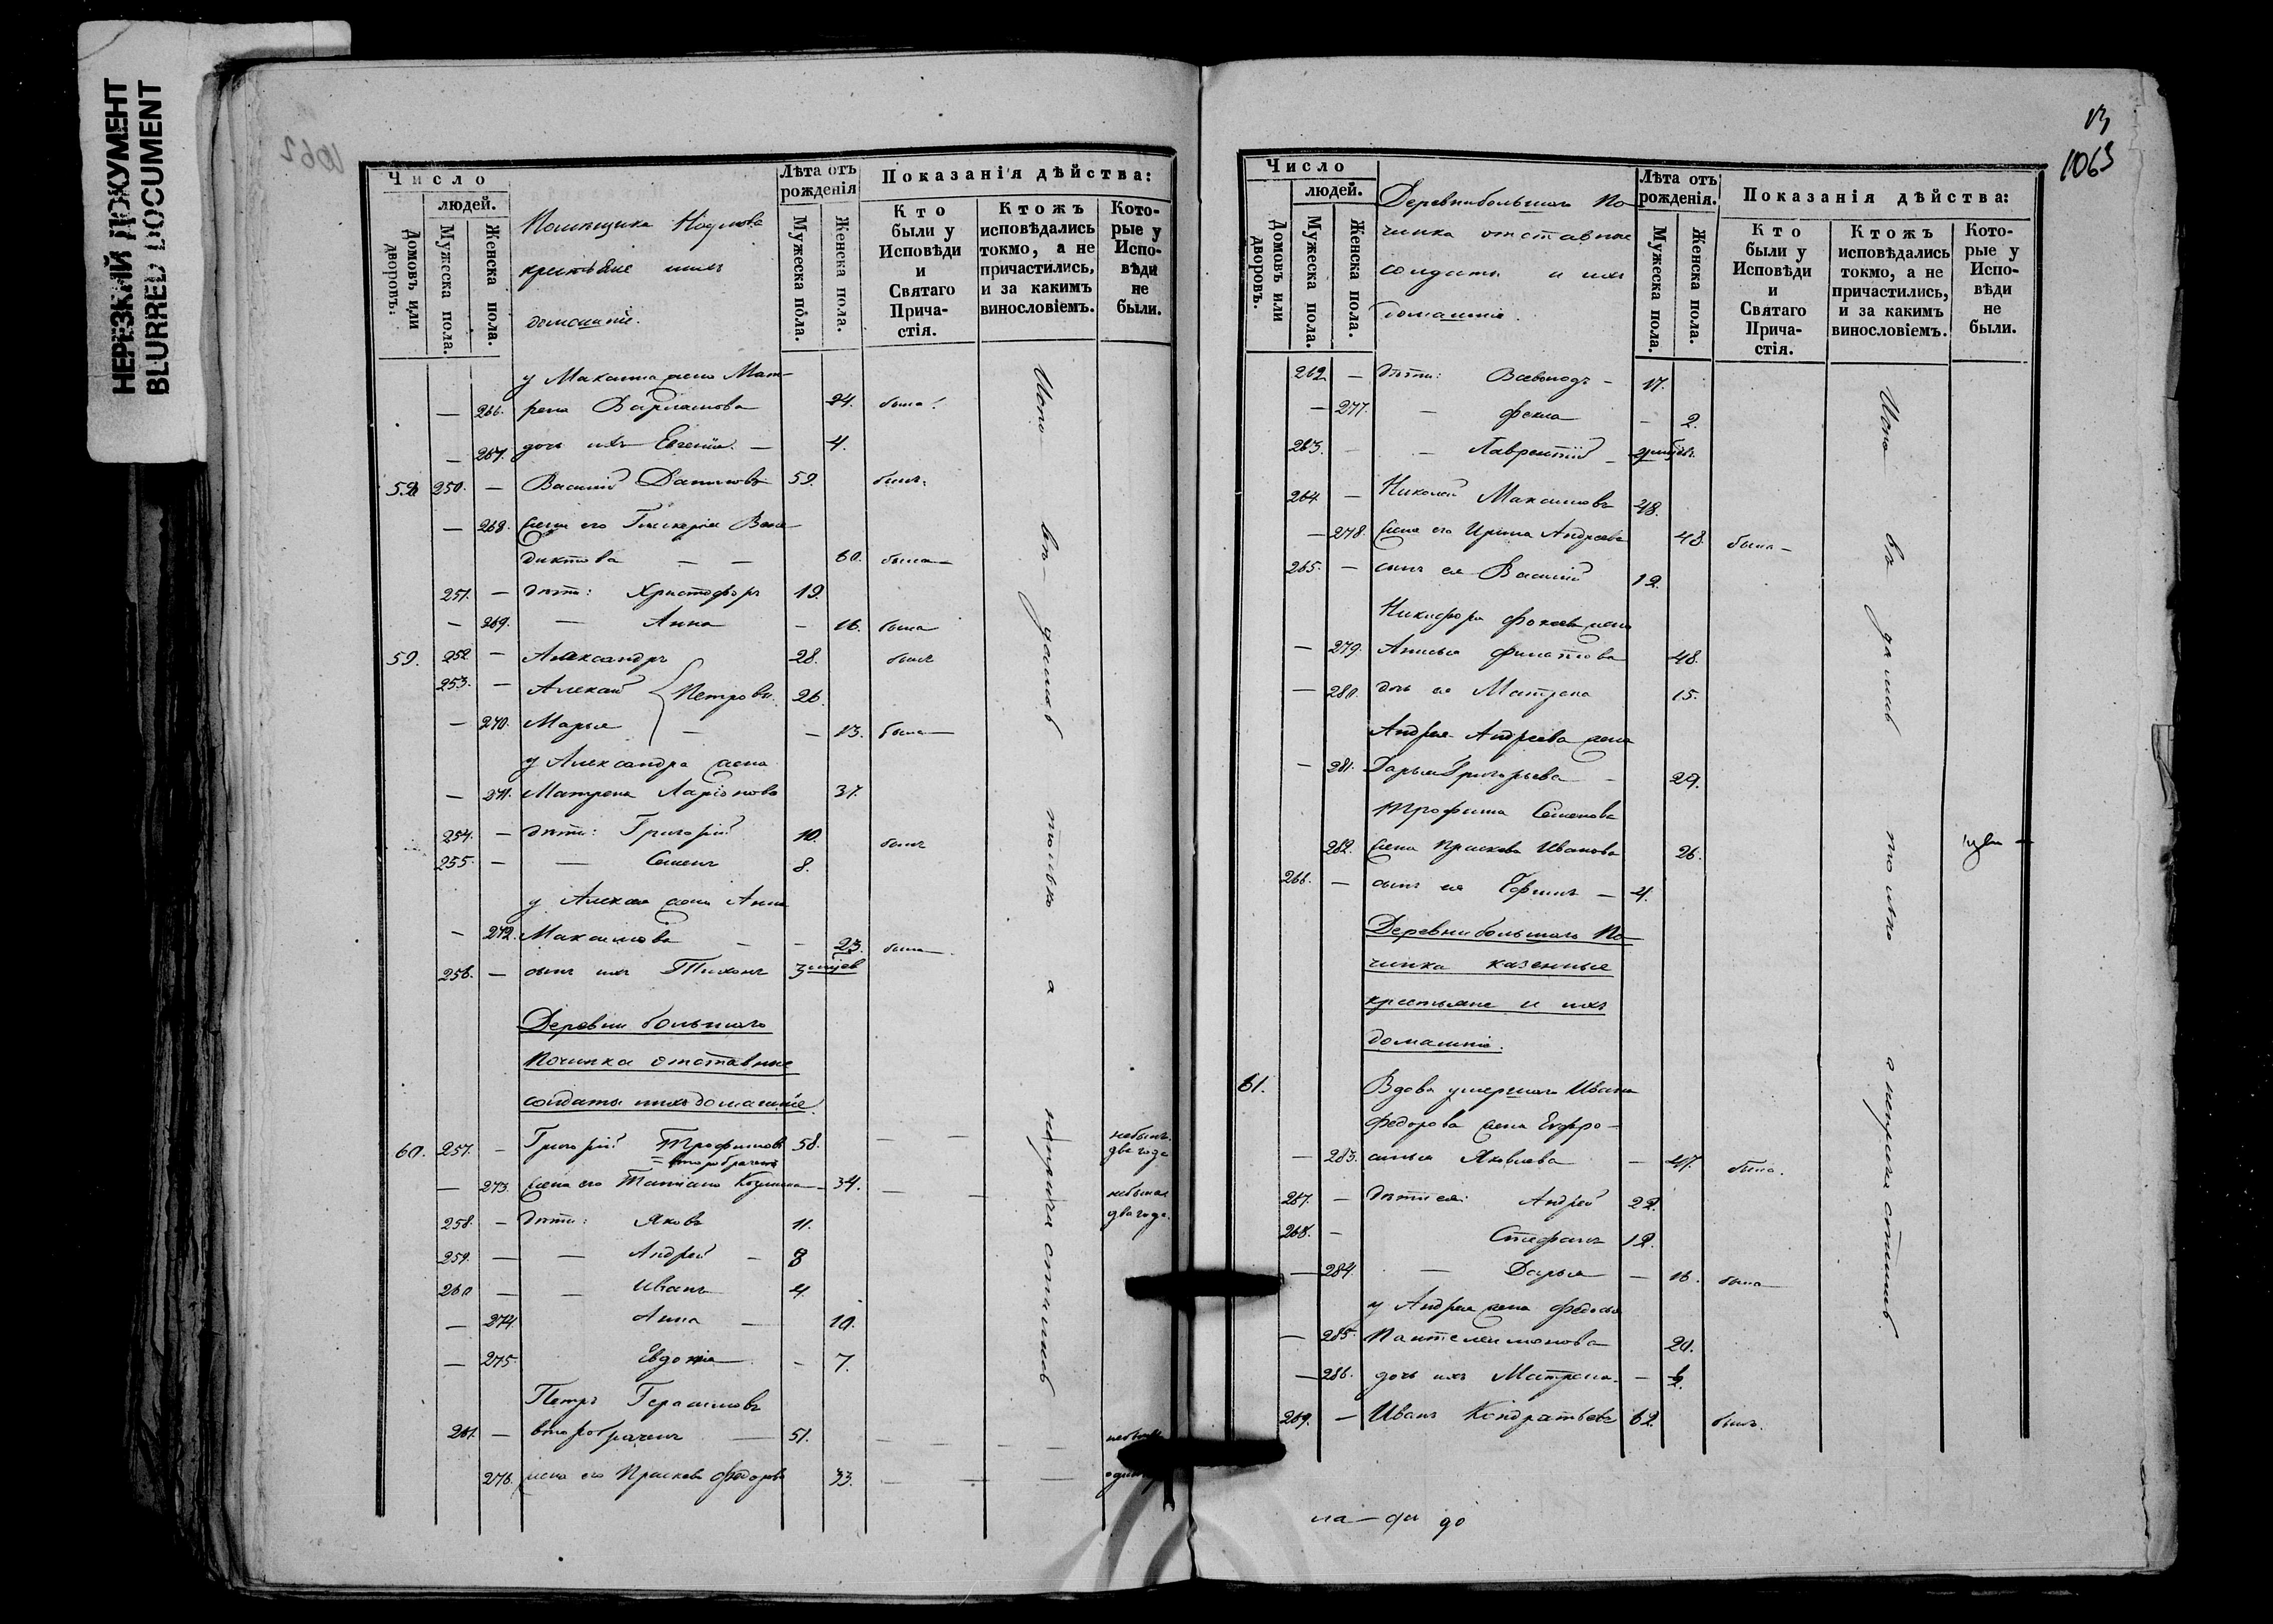 НЕРЕЗКИЙ ДОКУМЕНТ
BLURRED DOCUMENT
Число
людей.
Домовъ или дворовъ.
Мужеска пола.
Женска пола.
Помѣщика Наумова
крестьяне и ихъ
домашніе.
Лѣта отъ рожденія
Мужеска пола.
Женска пола.
Показанія дѣйства:
Кто были у Исповѣди и Святаго Причастія.
Ктожъ исповѣдались токмо, а не причастились, и за какимъ винословіемъ.
Которые у Исповѣди не были.
у Максима жена Мат-
— 266. рена Варламова 24. была.
— 267. дочь ихъ Евгенія — 4.
58 250. — Василій Даниловъ 59. былъ.
— 268. Жена его Гликерія Вене-
диктова — — 60. была —
251. — дѣти: Христофоръ 19.
— 269. — Анна — 16. была
59. 252 — Александръ 28. былъ
253. — Алексѣй Петровы. 26
— 270. Марья — — 13. была —
у Александра жена
— 271. Матрена Ларіонова 37.
254. — дѣти: Григорій 10. былъ
255 — — Семенъ 8.
у Алексѣя жена Анна
— 272. Максимова — — 23. была —
256. — сынъ ихъ Тихонъ 3 мѣсяцев
Деревни большаго
Починка отставные
солдаты и ихъ домашніе.
60. 257. — Григорій Трофимовъ 58. — — небылъ два года
второбрачный
— 273. Жена его Татіана Козмина — 34. — — небыла два года.
258. — дѣти: Яковъ 11.
259. — — Андрей — 8
260 — — Иванъ 4.
— 274. Анна — 10.
— 275. Евдокія — 7.
Петръ Герасимовъ
261. — второбраченъ — 51. — — — —
276. жена его Прасковья Федорова 33. — — —
Испо въ дались только а непричастились
13
1063
Число
людей.
Домовъ или дворовъ.
Мужеска пола.
Женска пола.
Деревни большаго По-
чинка отставные
солдаты и ихъ
домашніе.
Лѣта отъ рожденія.
Мужеска пола.
Женска пола.
Показанія дѣйства:
Кто были у Исповѣди и Святаго Причастія.
Ктожъ исповѣдались токмо, а не причастились, и за какимъ винословіемъ.
Которые у Исповѣди не были.
262 — дѣти: Всеволодъ — 17.
— 277. — Фекла — 2.
263. — — Лаврентій —
264 — Николай Максимовъ 48.
— 278. Жена его Ирина Андреева 48. была —
265. — сынъ ея Василій 12.
Никифора Фокеева жена
— 279. Анисья Филатова 48.
— 280. дочь ея Матрена 15.
Андрея Андреева жена
— 281. Дарья Григорьева — 29.
Трофима Семенова
282. жена Прасковья Иванова 26.
266. — сынъ ея Ефимъ — 4.
Деревни большаго По-
чинка казенные
крестьяне и ихъ
домашніе.
61. Вдова умершаго Ивана
Федорова жена Евфро-
— 283. синья Яковлева — 47. была.
267. — дѣти ея: Андрей 22.
268. — Стефанъ 12.
— 284. — Дарья — 16. была —
у Андрея жена Федосья
— 285. Пантелеимонова 20.
— 286. дочь ихъ Матрена —
269. — Иванъ Кондратьевъ 62. былъ.
Испо въ дались только а непричастились